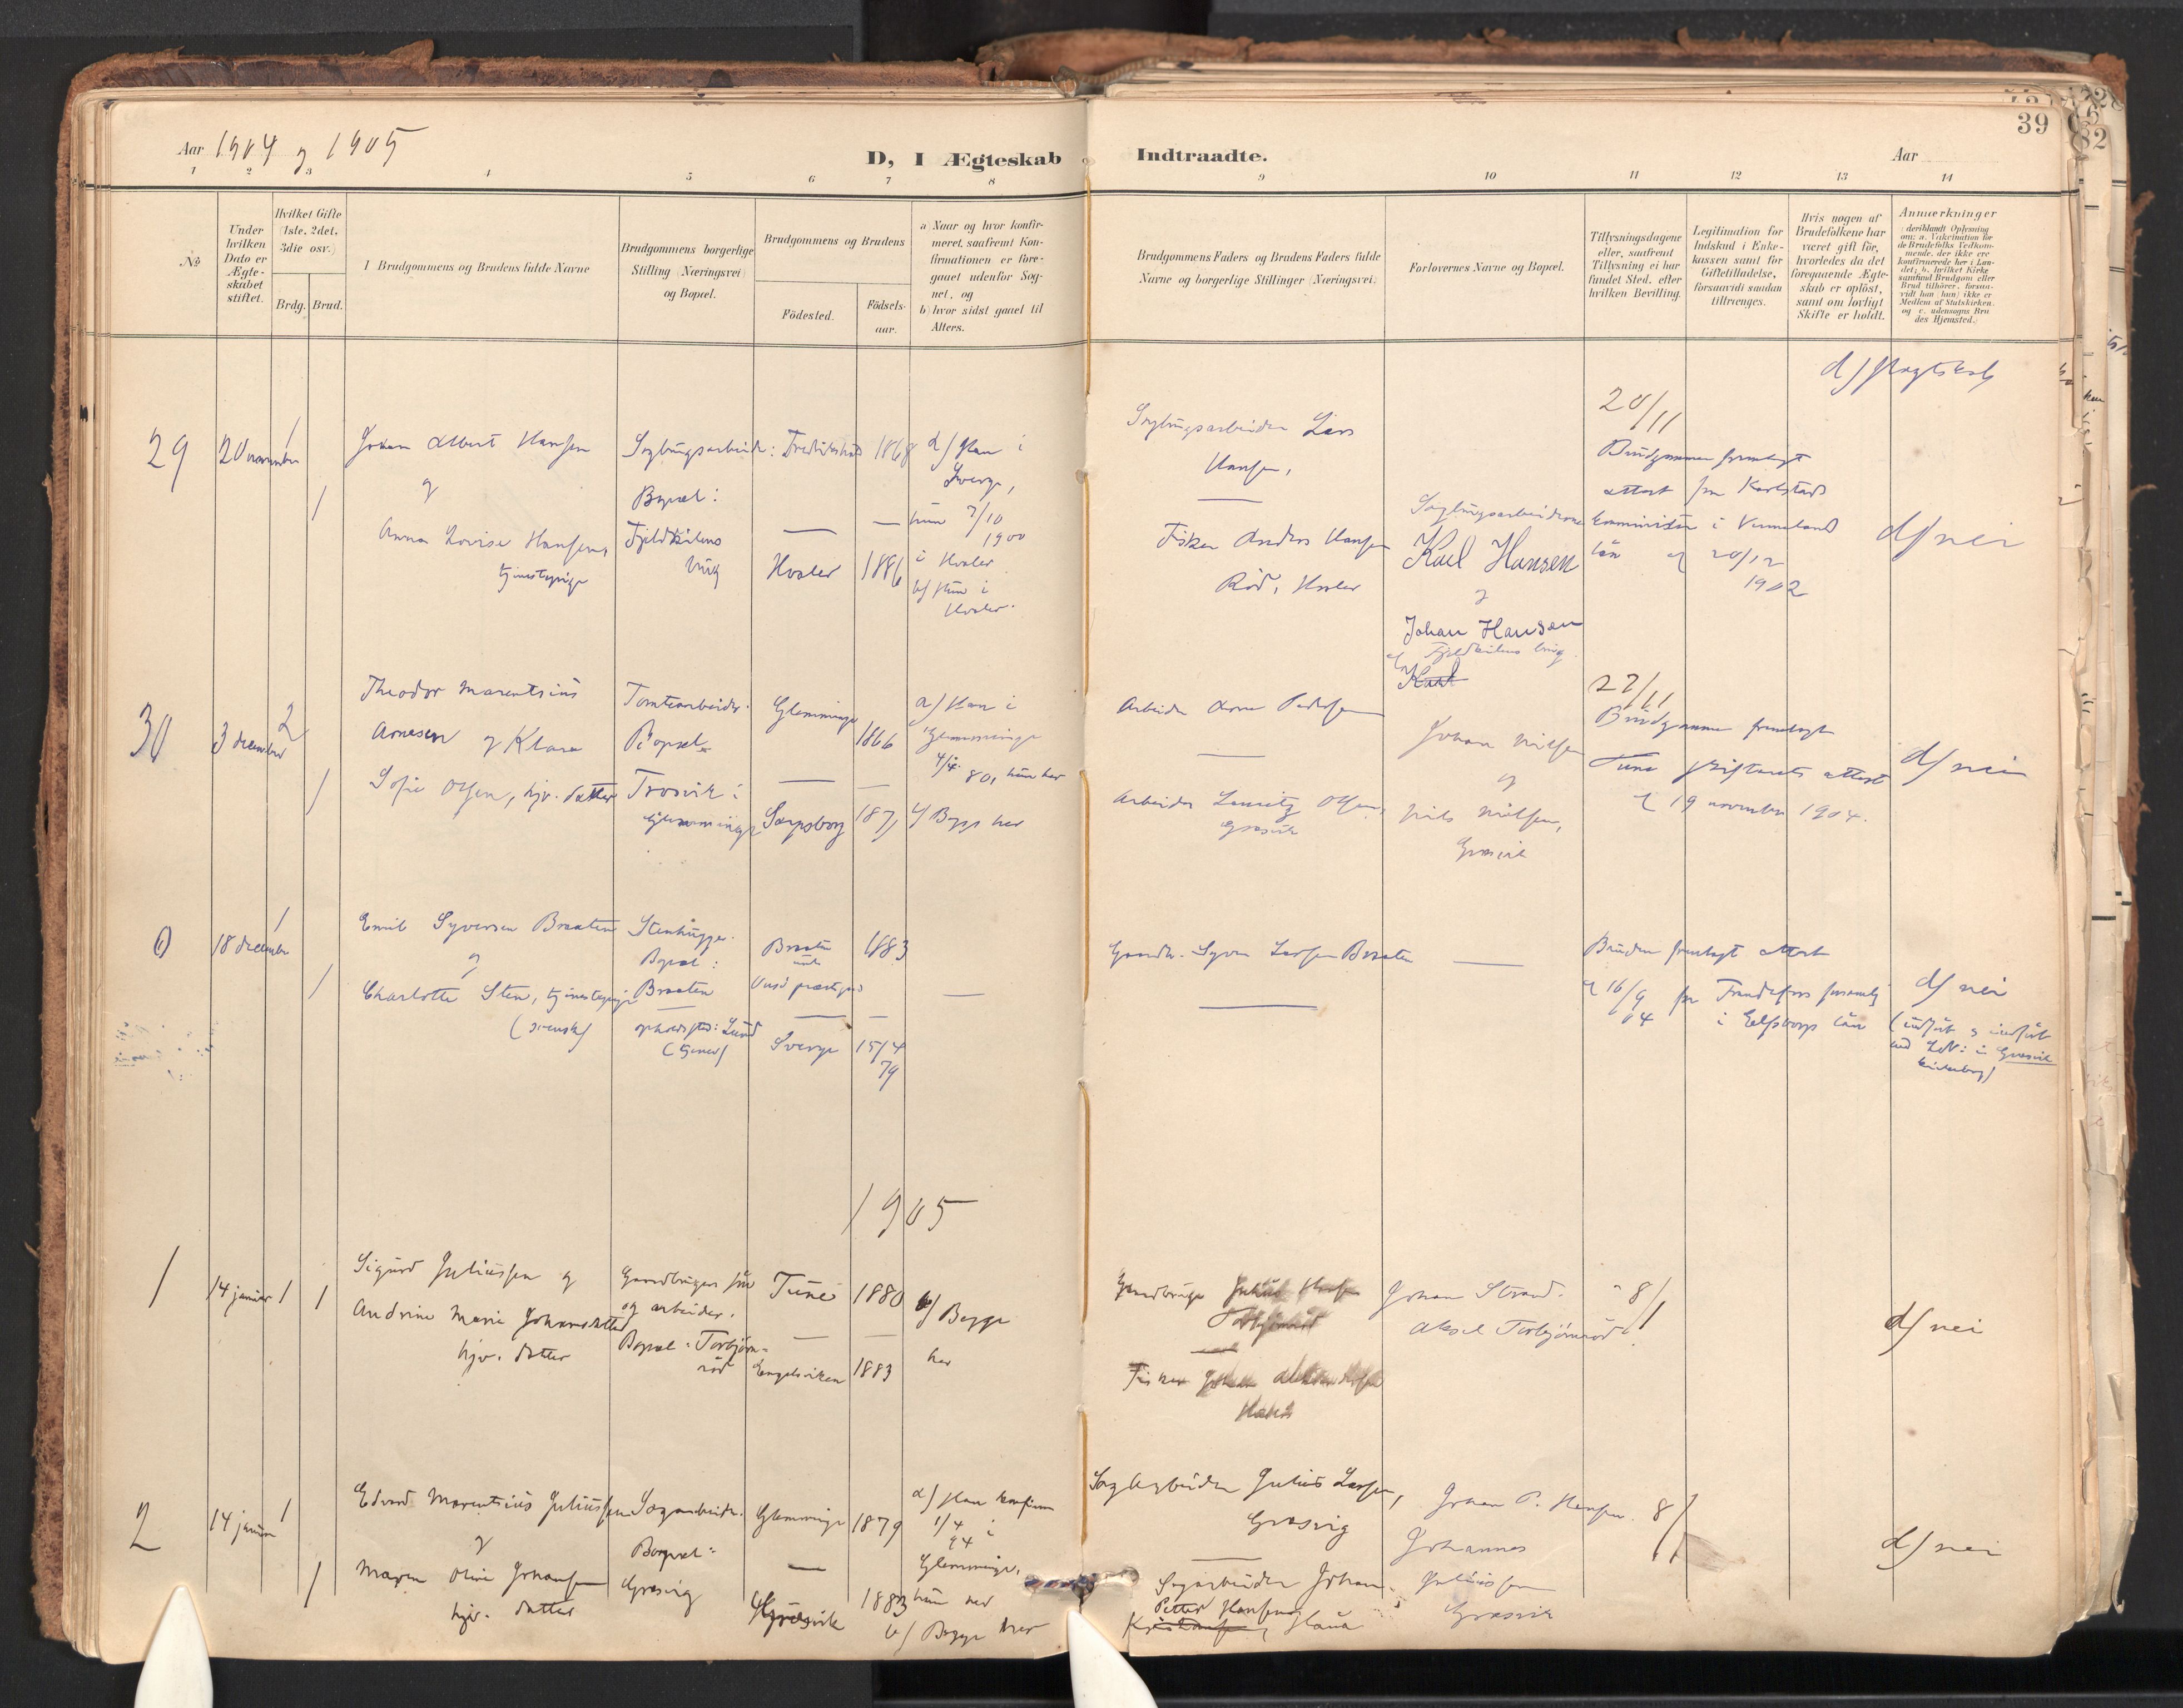 Aar 1904 og 1905
D, I Ægteskab Indtraadte.
Aar
39
1 2 3 4 5 6 7 8 9 10 11 12 13 14
No
Under hvilken Dato er Ægteskabet stiftet.
Hvilket Gifte (1ste, 2det, 3die osv.)
Brdg. Brud.
I Brudgommens og Brudens fulde Navne
Brudgommens borgerlige Stilling (Næringsvei) og Bopæl.
Brudgommens og Brudens
Födested.
Födselsaar.
a Naar og hvor konfirmeret, saafremt Konfirmationen er foregaaet udenfor Sognet, og
b) hvor sidst gaaet til Alters.
Brudgommens Faders og Brudens Faders fulde Navne og borgerlige Stillinger (Næringsvei)
Forlovernes Navne og Bopæl.
Tillysningsdagene eller, saafremt Tillysning ei har fundet Sted, efter hvilken Bevilling.
Legitimation for Indskud i Enkekassen samt for Giftetilladelse, forsaavidt saadan tiltrænges.
Hvis nogen af Brudefolkene har været gift för, hvorledes da det foregaaende Ægteskab er oplöst, samt om lovligt Skifte er holdt.
Anmærkninger
d) slægtskab
29
20 november
1
1
Johan Albert Hansen
og
Anna Lovise Hansens
tjenestepige
Sagbrugsarbeider:
Bopæl:
Fjeldkilens
brug
Fredrikstad 1868
Hvaler 1886
a) Han i
Sverge,
hun 7/10
1900
i Hvaler
b) Hun i
Hvaler.
Sagbrugsarbeider Lars
Hansen,
Fisker Anders Hansen
Röd, Hvaler
Sagbrugsarbeiderne
Karl Hansen
og
Johan Hansen
Fjeldkilens brug.
Karl
20/11
Brudgommen fremlagt
attest fra Karlstads
kominister i Vermelands
län af 20/12
1902
d) nei
30
3 december
2
1
Theodor Marentsius
Arnesen og Klara
Sofie Olsen, hjv. datter
Tomtearbeider.
Bopæl
Trosvik i
Glemminge
Glemminge
1866
Sarpsborg 1871
a) Han i
Glemminge
4/4 80, hun her
b) Begge her
Arbeider Arne Pedersen
Arbeider Lauritz Olsen,
Græsvik
Johan Nilsen
og
Nils Nilsen,
Græsvik
27/11
Brudgommen fremlagt
Tune skifterets attest
af 19 november 1904.
d) nei
0
18 december
1
1
Emil Syversen Braaten
og
Charlotte Sten, tjenestepige
(svensk)
Stenhugger.
Bopæl:
Braaten
opholdssted: Lund
Braaten 1883
Onsö prestegjeld
Sverge 15/4
79
Gaardbr. Syver Larsen Braaten
Bruden fremlagt attest
af 16/9 04 fra Frändefors forsamling
i Elfsborgs län
d) nei
(indfört
Græsvik
kirkebog)
1905
1
14 januar 1 1
Sigurd Juliussen og
Andrine Marie Johansdatter
hjv. datter
Gaardbrugers sön
og arbeider.
Bopæl: Torbjörnröd
Tune 1880
Engelsviken 1883
b) Begge
her
Gaardbruger Julius Hansen
Torbjörnröd
Fisker Johan
Johan Strand.
Aksel Torbjörnröd.
8/1
d) nei
2
14 januar
1
1
Edvard Marentsius Juliussen
og
Maren Oline Johansen
hjv. datter
Sagarbeider.
Bopæl:
Græsvig
Glemminge 1879
Græsvik 1883
a) Han konfirm.
1/4 94 i
Glemminge,
hun her
b) Begge her
Sagarbeider Julius Larsen,
Græsvig
Sagarbeider Johan
Petter Hansen
Kristiansen, Hauá
Johan P. Hansen.
Johannes
Juliussen
Græsvik
8/1
d) nei